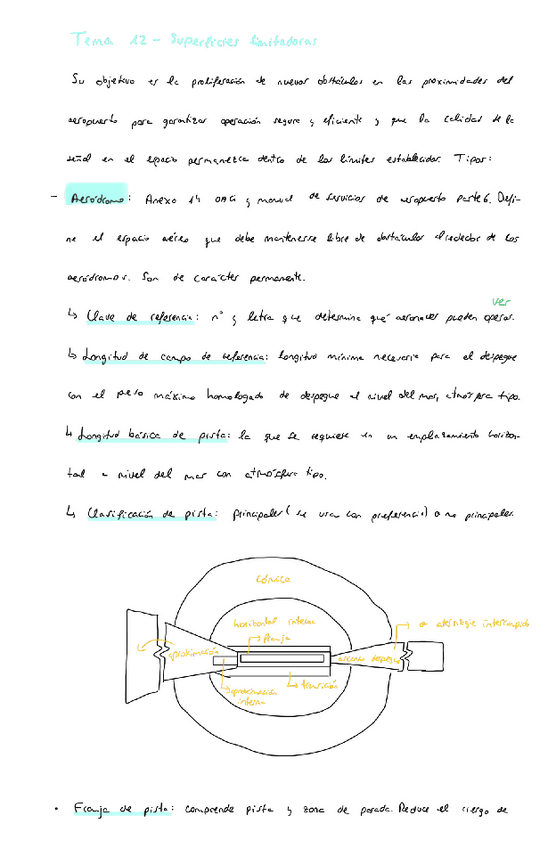 Tema 12 - Superficies limitadoras
Su objetivo es la proliferación de nuevos obstáculos en las proximidades del
aeropuerto para garantizar operación segura y eficiente y que la calidad de la
señal en el espacio permanezca dentro de los límites establecidos. Tipos:
- Aeródromo: Anexo 14 OACI y manual de servicios de aeropuerto parte 6. Defi-
ne el espacio aéreo que debe mantenerse libre de obstáculos alrededor de los
aeródromos. Son de carácter permanente.
ver
↳ Clave de referencia: nº y letra que determina qué aeronaves pueden operar.
↳ Longitud de campo de referencia: longitud mínima necesaria para el despegue
con el peso máximo homologado de despegue al nivel del mar, atmósfera tipo.
↳ Longitud básica de pista: la que se requiere en un emplazamiento horizon-
tal a nivel del mar con atmósfera tipo.
↳ Clasificación de pista: principales (se usa con preferencia) o no principales.
cónica
horizontal interna
de aterrizaje interrumpido
franja
aproximación
ascenso despegue
aproximación
interna
transición
• Franja de pista: comprende pista y zona de parada. Reduce el riesgo de